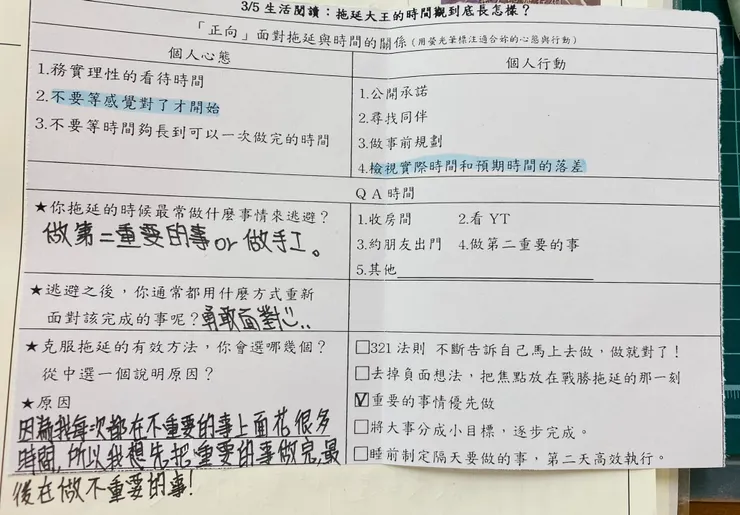 3/5 生活閱讀：拖延大王的時間觀到底長怎樣？
「正向」面對拖延與時間的關係（用螢光筆標注適合妳的心態與行動）
個人心態
1.務實理性的看待時間
2.不要等感覺對了才開始
3.不要等時間夠長到可以一次做完的時間
個人行動
1.公開承諾
2.尋找同伴
3.做事前規劃
4.檢視實際時間和預期時間的落差
QA 時間
★你拖延的時候最常做什麼事情來逃避？
做第二重要的事or 做手工。
1.收房間 2.看 YT
3.約朋友出門 4.做第二重要的事
5.其他
★逃避之後，你通常都用什麼方式重新
面對該完成的事呢？勇敢面對心..
★克服拖延的有效方法，你會選哪幾個？
從中選一個說明原因？
★原因
因為我每次都在不重要的事上面花很多
時間，所以我想先把重要的事做完,最
後在做不重要的事!
□321 法則 不斷告訴自己馬上去做，做就對了！
□去掉負面想法，把焦點放在戰勝拖延的那一刻
☑重要的事情優先做
□將大事分成小目標，逐步完成。
□睡前制定隔天要做的事，第二天高效執行。